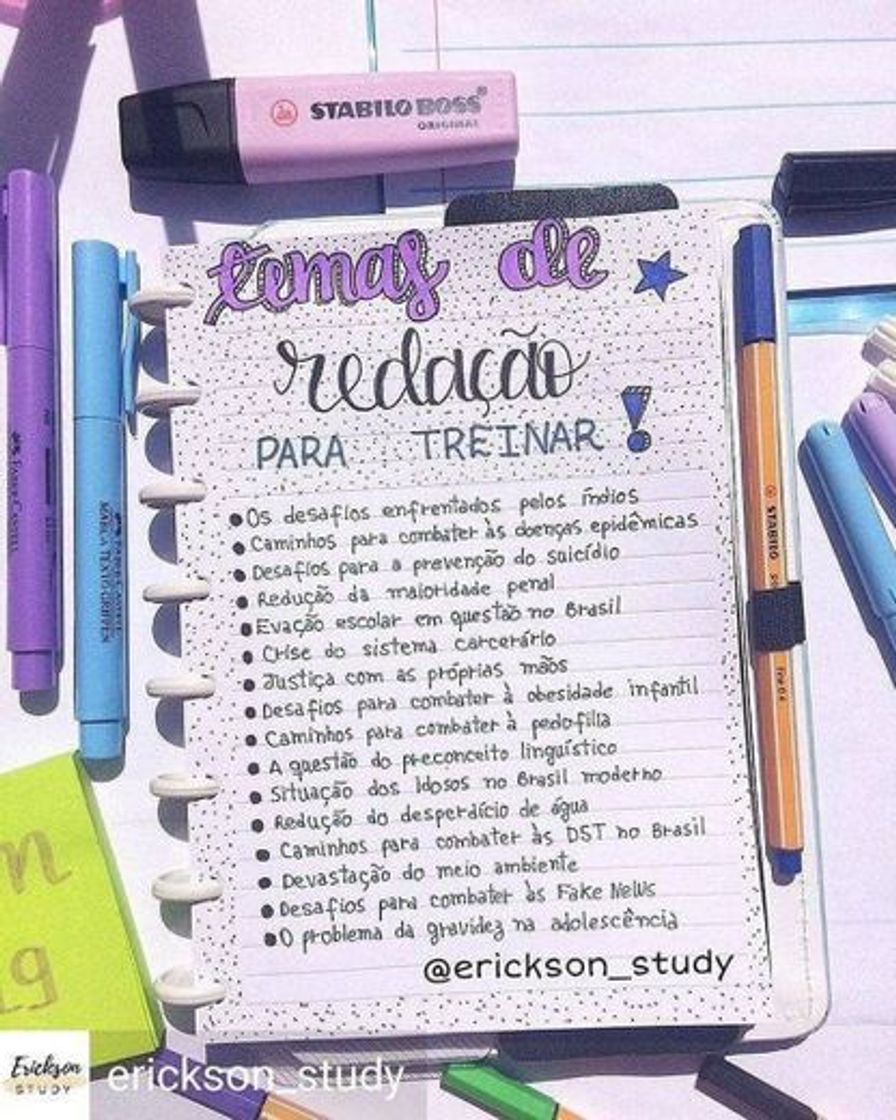 STABILO BOSS®
ORIGINAL
temas de
redação
PARA TREINAR!
Os desafios enfrentados pelos índios
Caminhos para combater às doenças epidêmicas
Desafios para a prevenção do suicídio
Redução da maioridade penal
Evação escolar em questão no Brasil
Crise do sistema carcerário
Justiça com as próprias mãos
Desafios para combater à obesidade infantil
Caminhos para combater à pedofilia
A questão do preconceito linguístico
Situação dos Idosos no Brasil moderno
Redução do desperdício de água
Caminhos para combater às DST no Brasil
Devastação do meio ambiente
Desafios para combater às Fake News
O problema da gravidez na adolescência
@erickson_study
STABILO
FABER-CASTELL
Erickson
STUDY
erickson_study